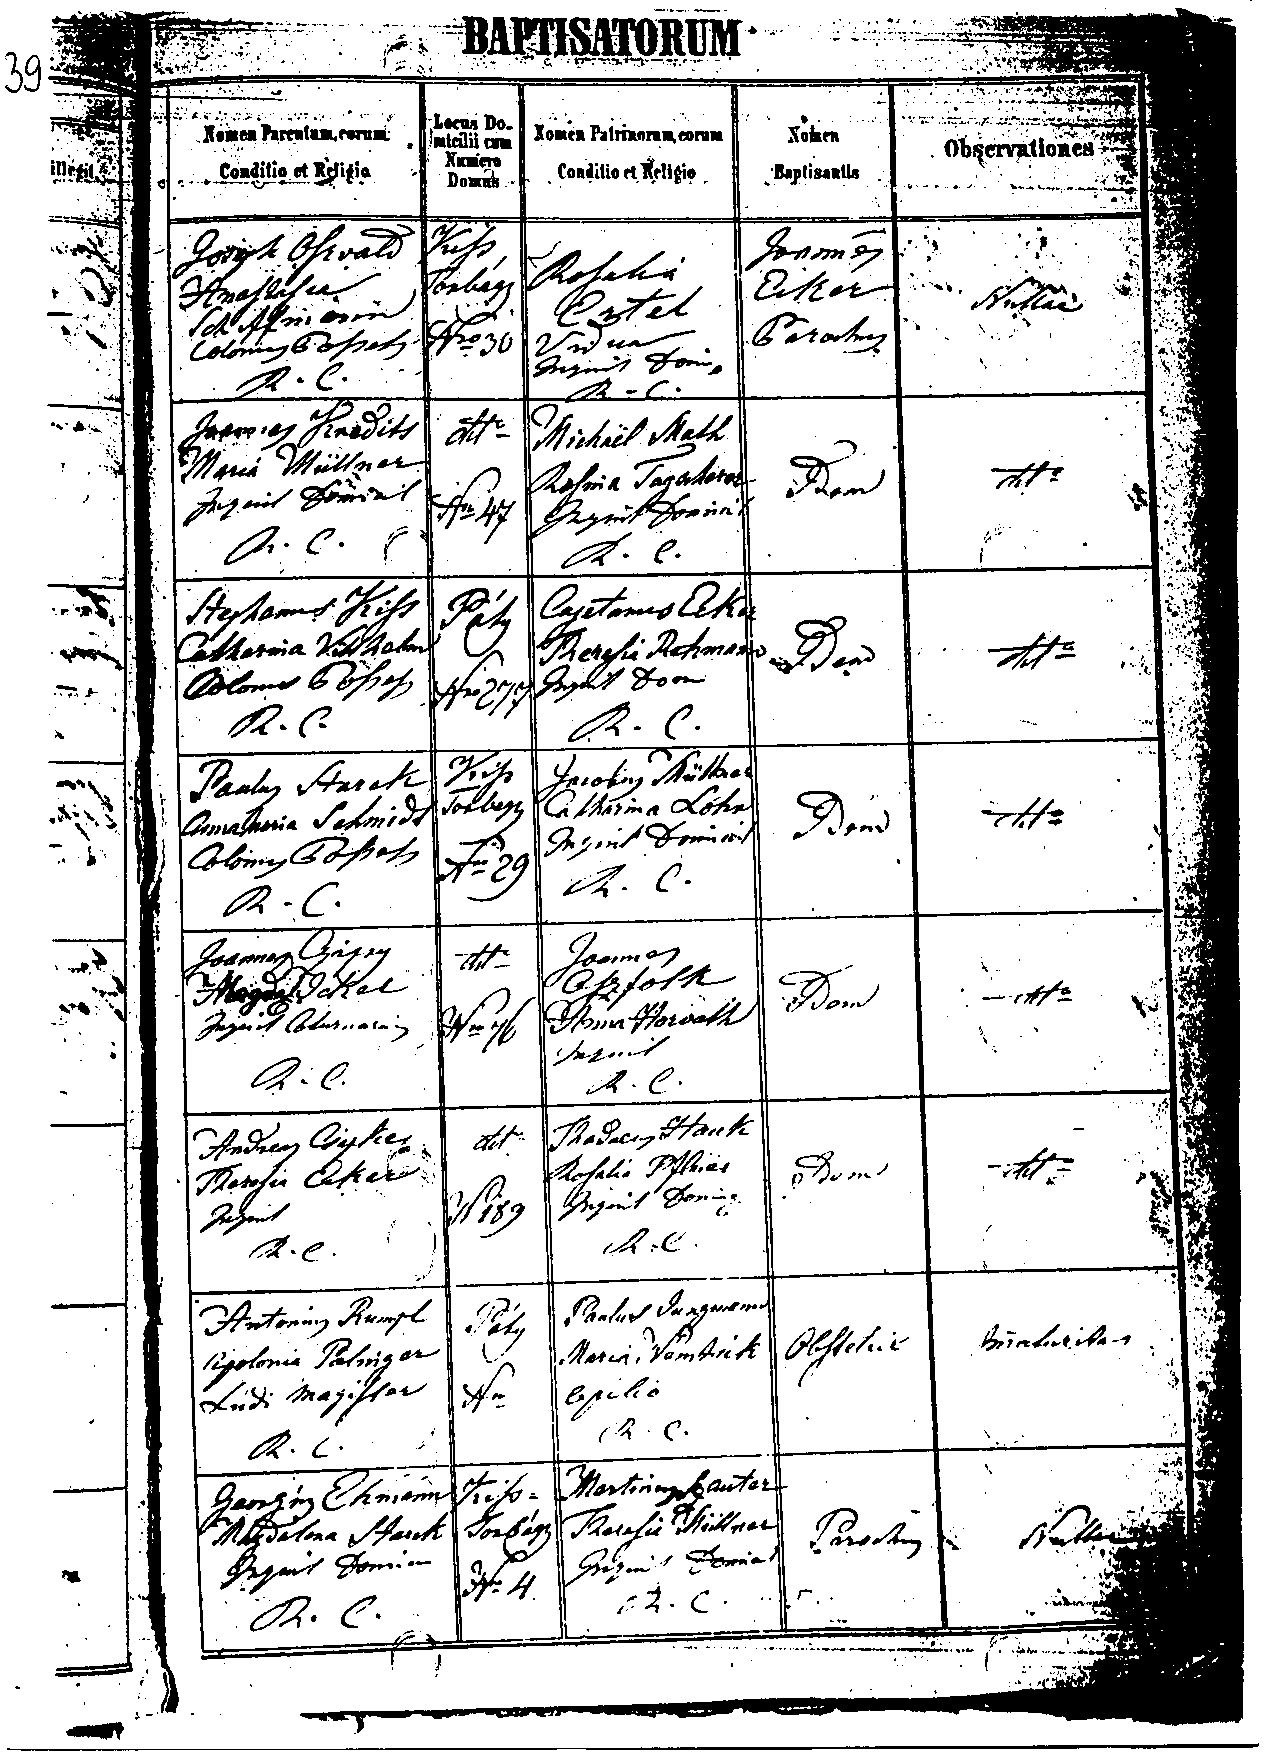 BAPTISATORUM
39
illegit.
Nomen Parentum, eorum
Conditio et Religio
Locus Do-
micilii cum
Numero
Domus
Nomen Patrinorum, eorum
Conditio et Religio
Nomen
Baptisantis
Observationes
Joseph Oswald
Anastasia
Colonus
R. C.
Kiss
Torbágy
Nro 30
Rosalia
Ertel
Vidua
Inquil Domin
R. C.
Joannes
Eiker
Parochus
Nullae
Joannes Kredits
Maria Müllner
Inquil Dominal
R. C.
dtto
Nro 47
Michaël Math
Rosina
Inquil Dominal
R. C.
Idem
dtto
Stephanus Kiss
Catharina
Colonus
R. C.
Páty
Nro 277
Cajetanus Eiker
Theresia Rehmann
Inquil Dom
R. C.
Idem
dtto
Paulus Starck
Annamaria Schmidt
Colonus
R. C.
Kiss
Torbágy
Nro 29
Jacobus Müllner
Catharina Lohn
Inquil Dominal
R. C.
Idem
dtto
Joannes
Magdal. Eckel
Inquil
R. C.
dtto
Nro 76
Joannes
Anna Horváth
Inquil
R. C.
Idem
dtto
Andreas
Theresia Eiker
Inquil
R. C.
dtto
N 189
Thadaeus Hauk
Rosalia
Inquil Domin
R. C.
Idem
dtto
Antonius Rumpl
Apolonia Palinger
Ludi Magister
R. C.
Páty
Nro
Paulus Jungmann
Maria
Opilio
R. C.
Obstetrix
Georgius Ehmann
Magdalena Starck
Inquil Domin
R. C.
Kiss-
Torbágy
Nro 4
Martinus Lauter
Theresia Müllner
Inquil Dominal
R. C.
Parochus
Nullae